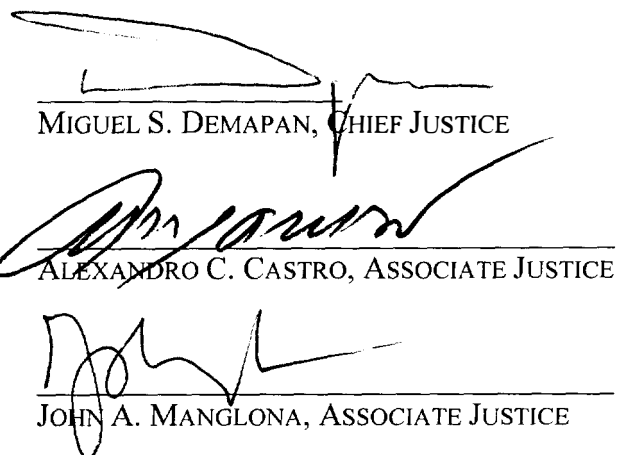 MIGUEL S. DEMAPAN, CHIEF JUSTICE
ALEXANDRO C. CASTRO, ASSOCIATE JUSTICE
JOHN A. MANGLONA, ASSOCIATE JUSTICE